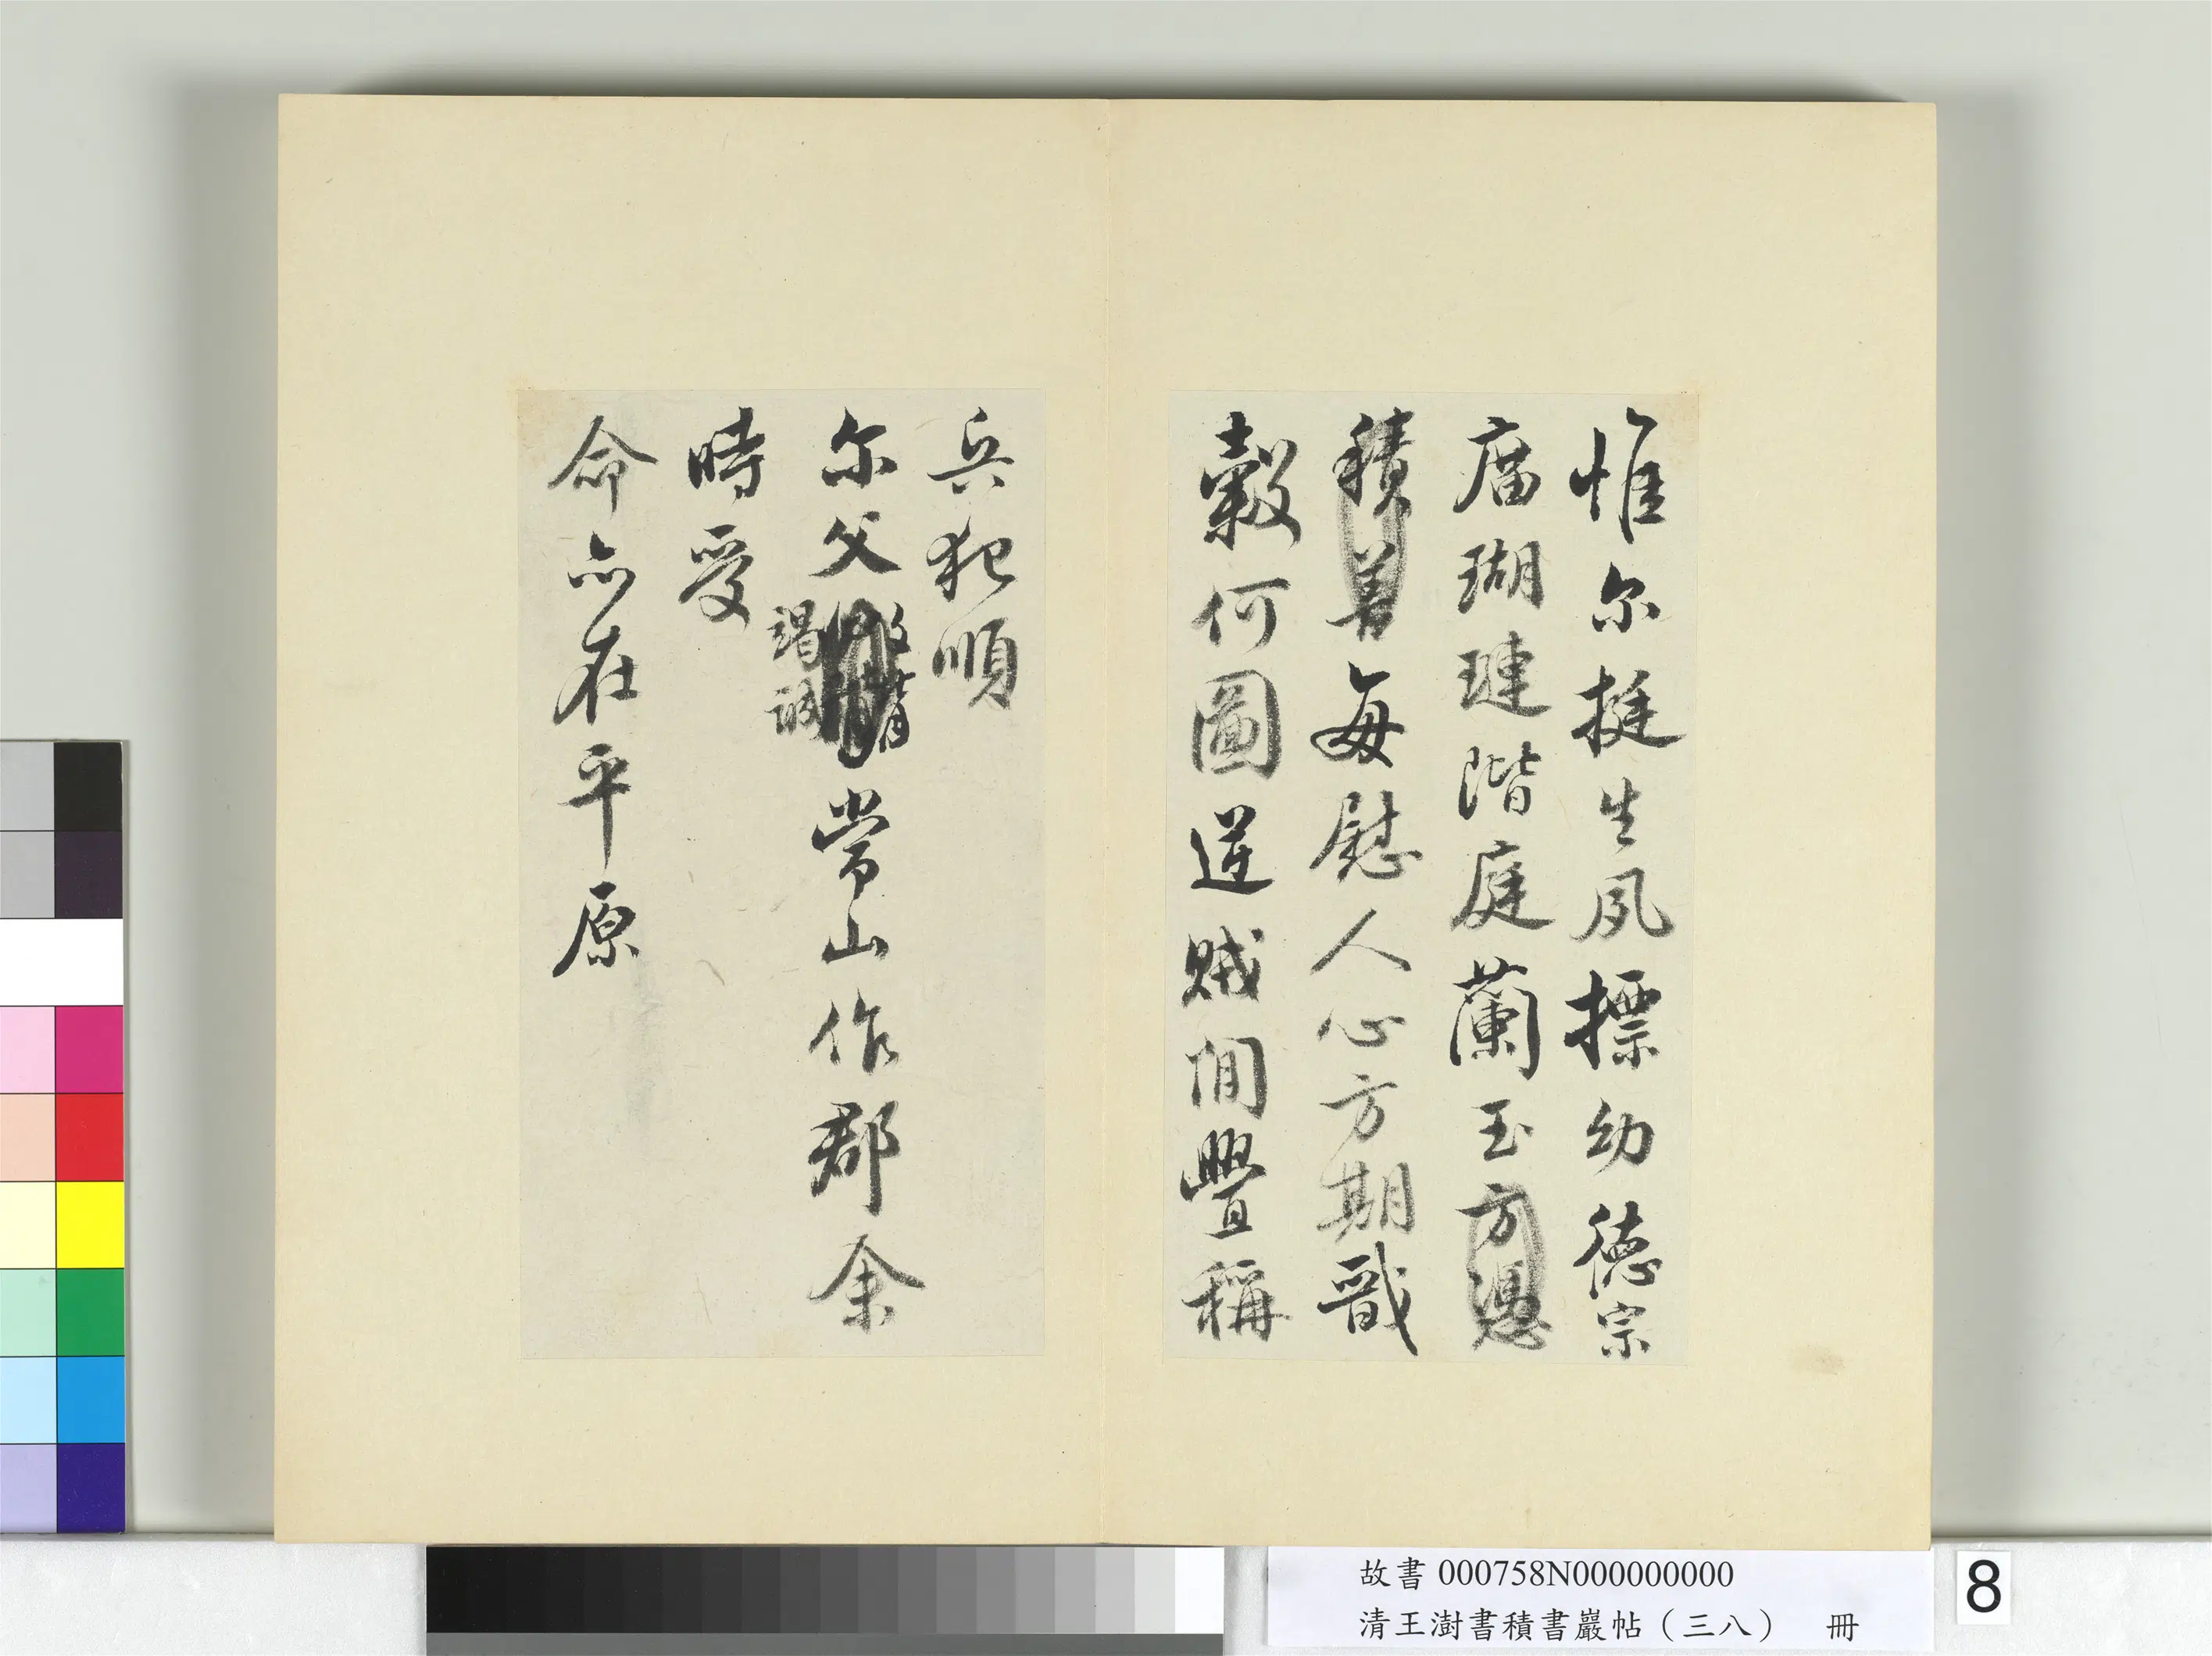 惟尔挺生夙標幼德宗
庿瑚璉階庭蘭玉方憑
積善每慰人心方期戩
穀何圖逆賊閒舋稱
兵犯順
尔父
竭誠
常山作郡余
時受
命亦在平原
故書 000758N000000000
清王澍書積書巖帖（三八） 冊
8